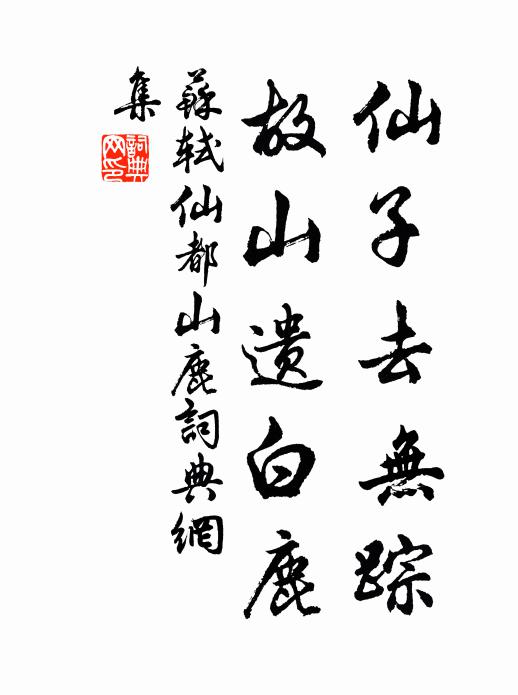 仙子去無踪
故山遺白鹿
蘇軾仙都山鹿詞典網
集
詞典
网印